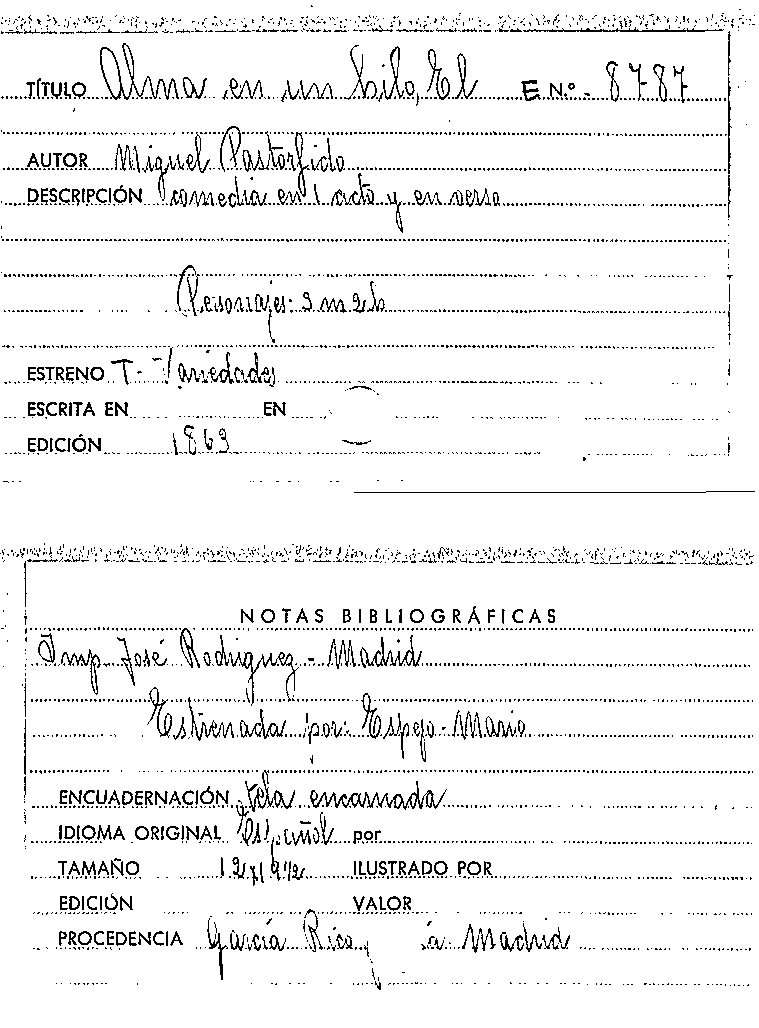 TÍTULO Alma en un hilo, El E N.º - 8787
AUTOR Miguel Pastorfido
DESCRIPCIÓN comedia en 1 acto y en verso
Personajes: 3 m 2 h
ESTRENO T. Variedades
ESCRITA EN EN
EDICIÓN 1863
NOTAS BIBLIOGRÁFICAS
Imp. José Rodriguez - Madrid
Estrenada por: Espejo - Mario
ENCUADERNACIÓN tela encarnada
IDIOMA ORIGINAL Español por
TAMAÑO ILUSTRADO POR
EDICIÓN VALOR
PROCEDENCIA García Rico y ía Madrid